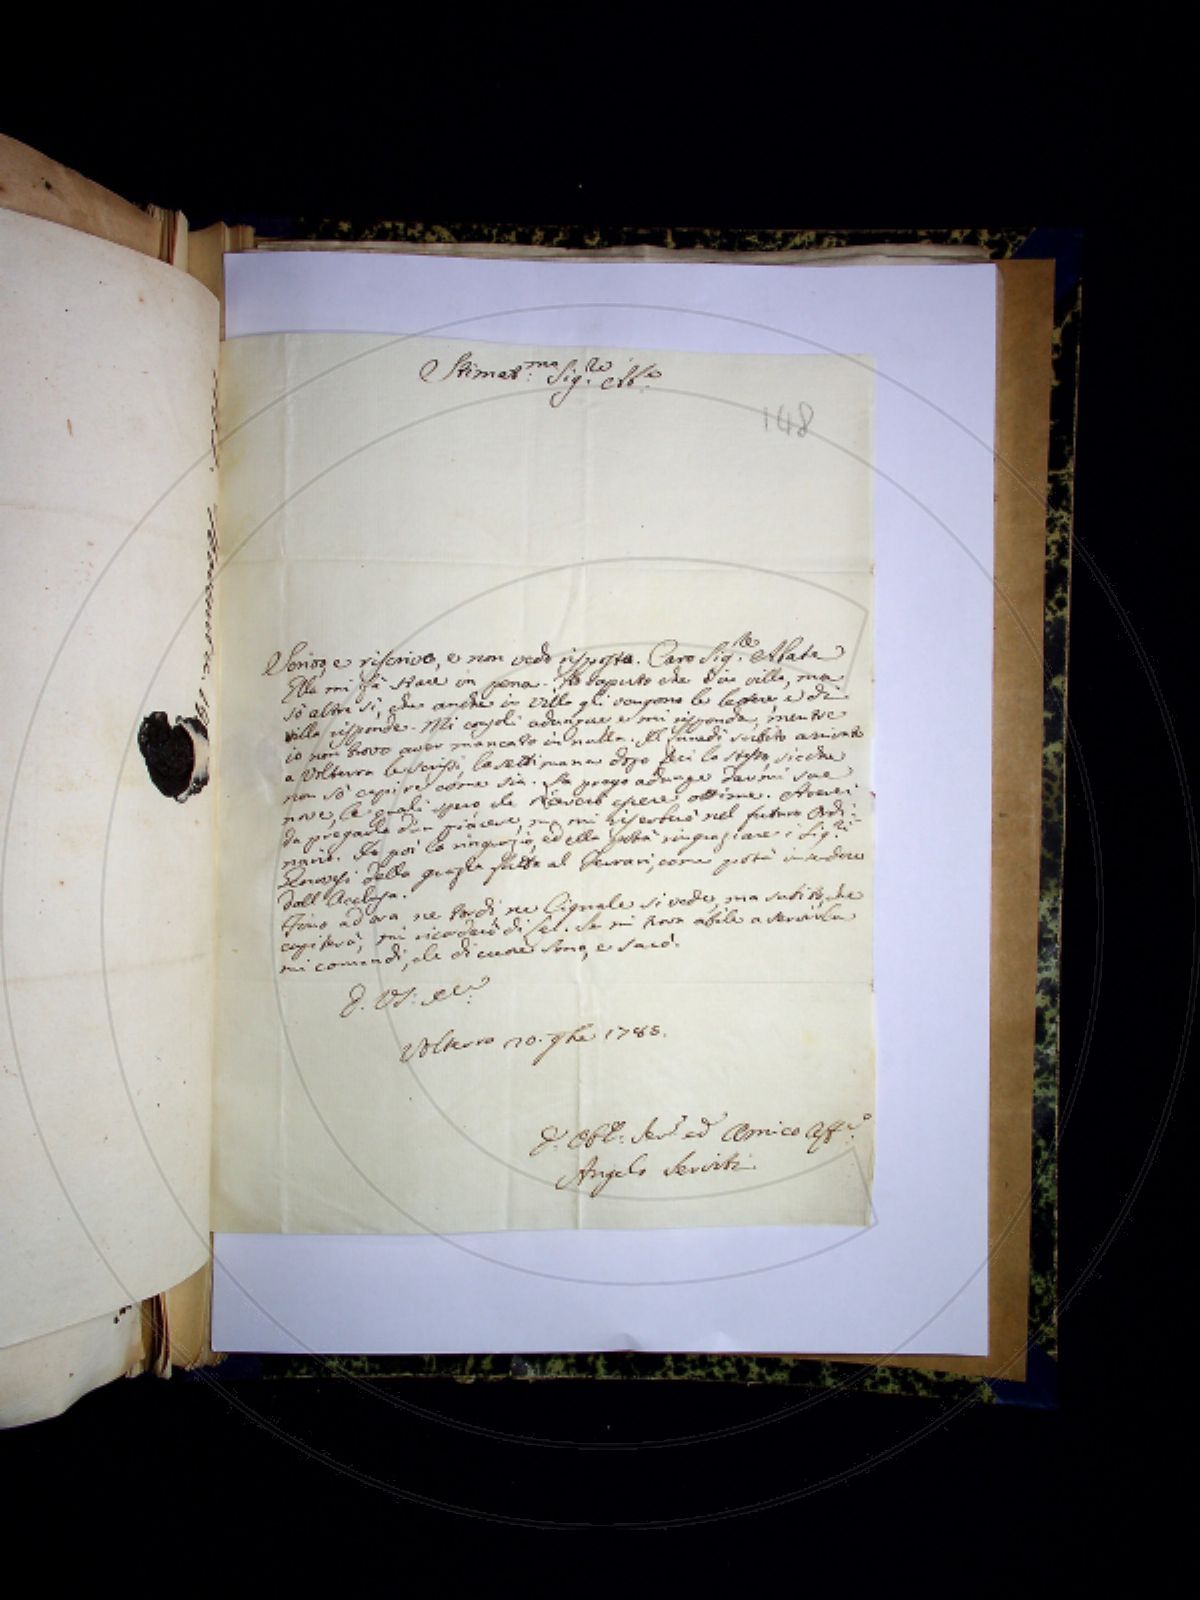 Stimat.mo Sig.re Ab.e
148
Scrivo, e riscrivo, e non vedo risposta. Caro Sig.re Abate
Ella mi fà stare in pena. Ho saputo che è in villa, ma
sò altresì, che anche in villa gli vengono le lettere, e di
villa risponde. Mi consoli adunque e mi risponda, mentre
io non trovo aver mancato in nulla. Il lunedì subito arrivato
a Volterra le scrissi, la settimana dopo feci lo stesso, sicche
non sò capire come sia. La prego adunque darmi sue
nove, le quali spero che riceverò essere ottime. Averei
da pregarla d'un piacere, ma mi riserberò nel futuro Ordi-
nario. Io poi la ringrazio, ed ella potrà ringraziare i Sig.ri
della grazia fatta al Ferrari, come potrà intendere
dall'Acclusa.
Fino ad ora ne Tordi ne Cignale si vede, ma subito, che
capiterà, mi ricorderò di Lei. Se mi trova abile a servirla
mi comandi, che di cuore sono, e sarò.
D. VS: Ill.
Volterra 10. 9bre 1785.
D. Obb.: Ser. ed Amico Aff.o
Angelo